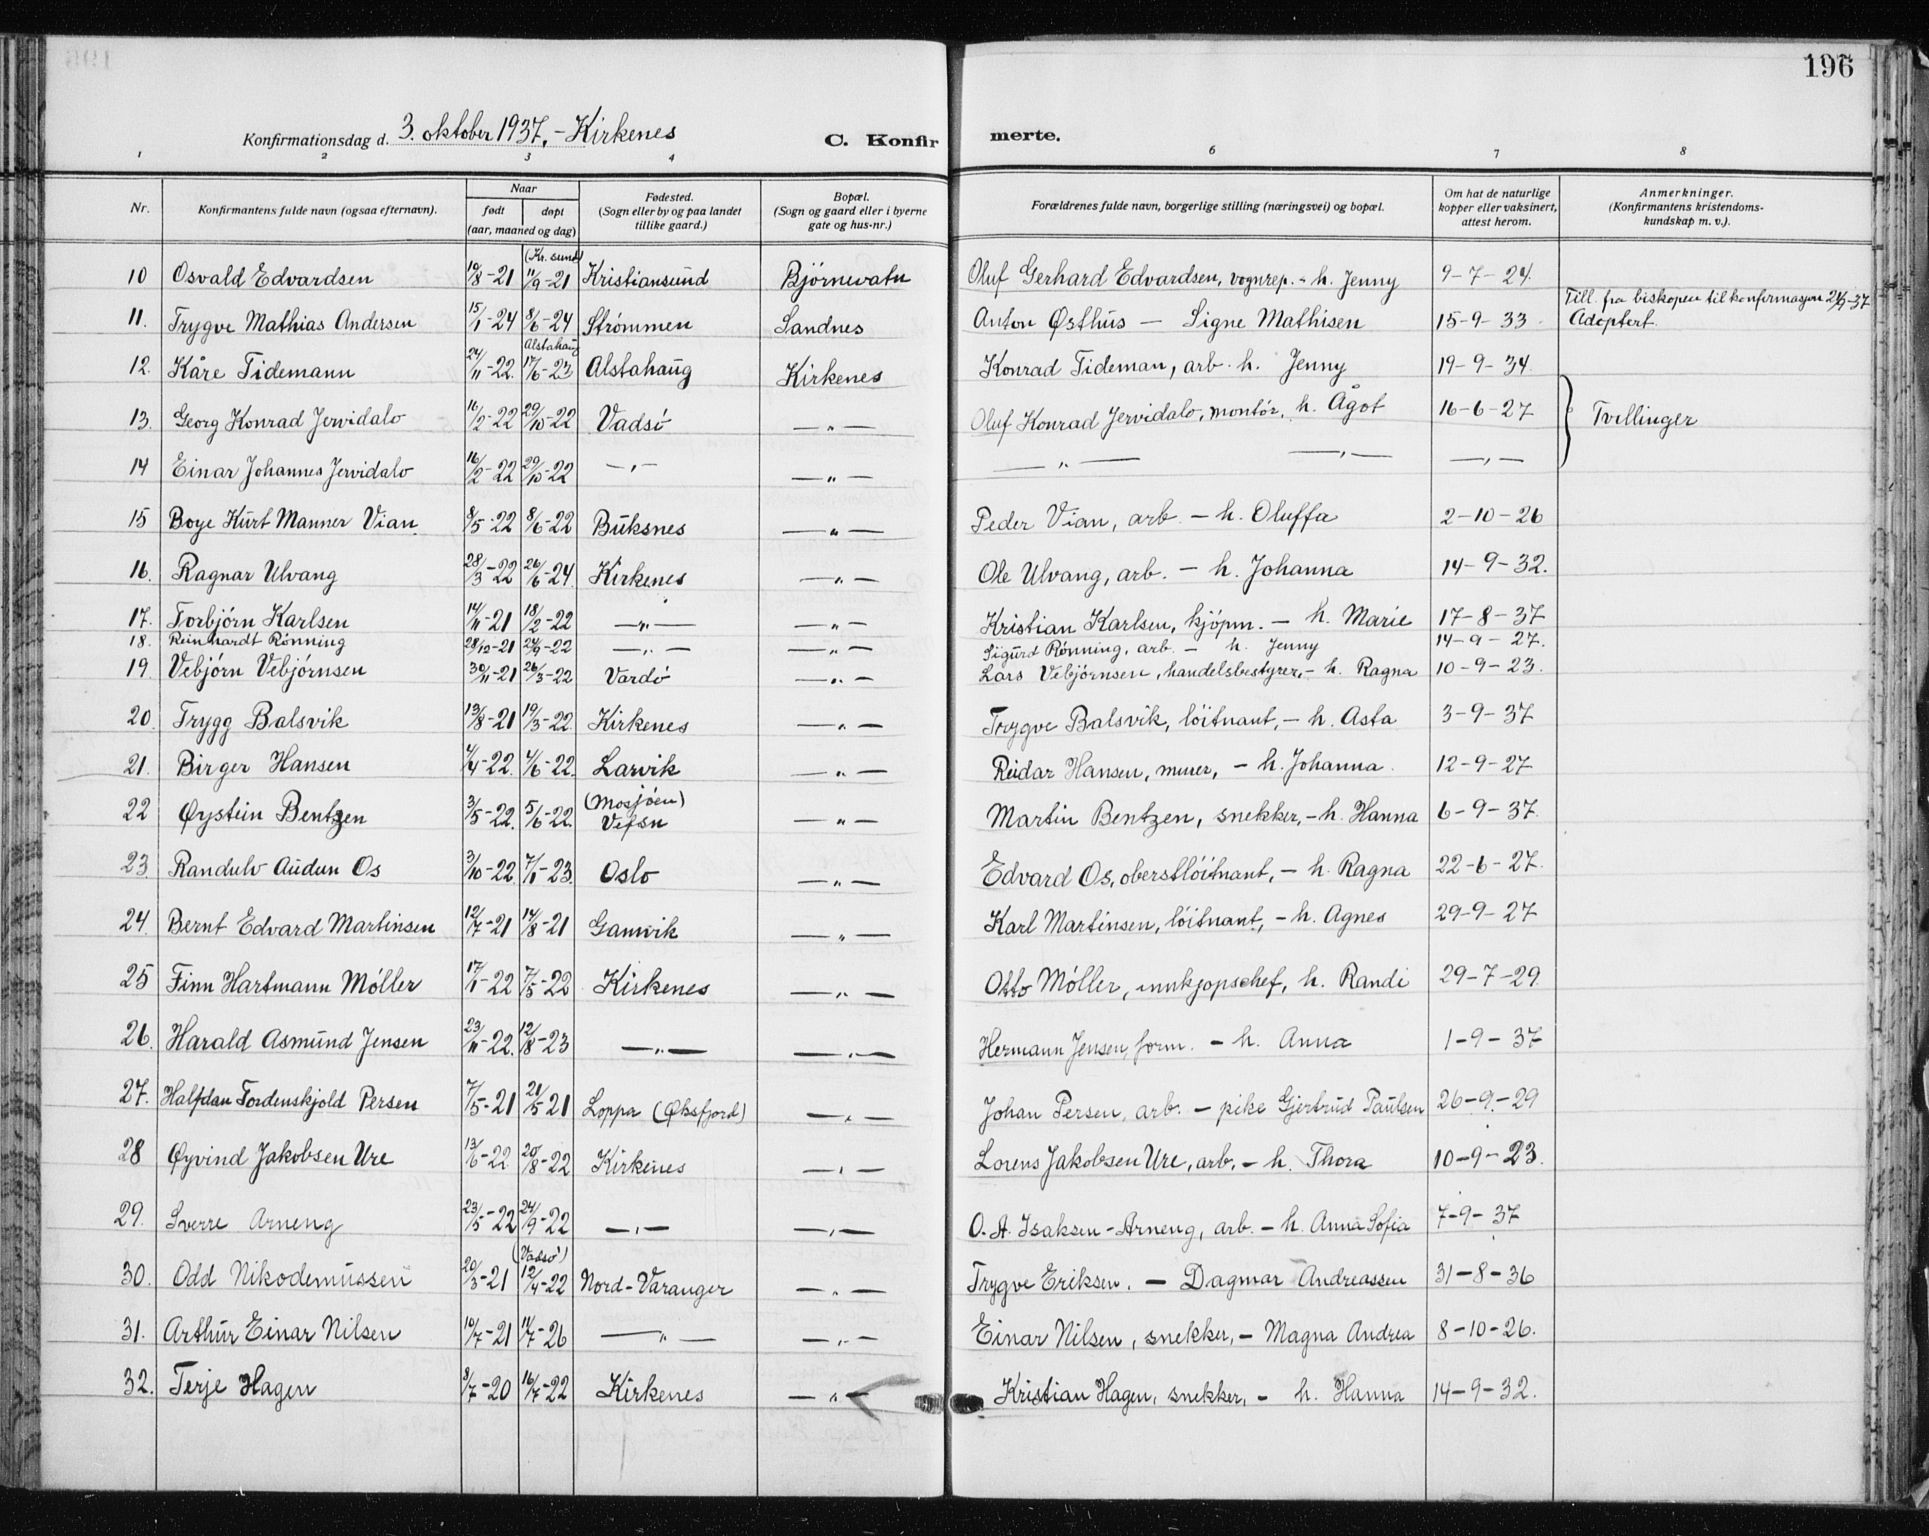 196
Konfirmationsdag d. 3. oktober 1937, - Kirkenes
C. Konfirmerte.
1 2 3 4 6 7 8
Nr. | Konfirmantens fulde navn (ogsaa efternavn). | Naar født døpt (aar, maaned og dag) | Fødested. (Sogn eller by og paa landet tillike gaard.) | Bopæl. (Sogn og gaard eller i byerne gate og hus-nr.) | Forældrenes fulde navn, borgerlige stilling (næringsvei) og bopæl. | Om hat de naturlige kopper eller vaksinert, attest herom. | Anmerkninger. (Konfirmantens kristendomskundskap m. v.).
10 Osvald Edvardsen 10/8-21 (Kr. sund) 11/9-21 Kristiansund Bjørnevatn Oluf Gerhard Edvardsen, vognrep. - h. Jenny 9-7-24.
11. Trygve Mathias Andersen 15/1-24 8/6-24 Strømmen Sandnes Anton Østhus — Signe Mathisen 15-9-33 Till. fra biskopen til konfirmasjon 21/9-37 Adoptert.
12. Kåre Tidemann 24/11-22. Alstahaug 17/6-23 Alstahaug Kirkenes Konrad Tideman, arb. h. Jenny 19-9-34.
13. Georg Konrad Jervidalo 16/2-22 29/10-22 Vadsö —„— Oluf Konrad Jervidalo, montör, h. Ågot 16-6-27 } Tvillinger
14 Einar Johannes Jervidalo 16/2-22 29/10-22 —„— —„— —„— —„— —„—
15 Boye Kurt Manner Vian 8/5-22 8/6-22 Buksnes —„— Peder Vian, arb. - h. Oluffa 2-10-26
16. Ragnar Ulvang 28/3-22 26/6-24. Kirkenes —„— Ole Ulvang, arb. - h. Johanna 14-9-32.
17. Torbjörn Karlsen 14/11-21 18/2-22 —„— —„— Kristian Karlsen, kjöpm. - h. Marie 17-8-37
18. Reinhardt Rönning 28/12-21 24/9-22 —„— —„— Sigurd Rönning, arb. - h. Jenny 14-9-27.
19. Vebjörn Vebjörnsen 30/11-21 26/3-22 Vardö —„— Lars Vebjörnsen, handelsbestyrer, - h. Ragna 10-9-23.
20. Trygg Balsvik 13/8-21 19/3-22. Kirkenes —„— Trygve Balsvik, löitnant, - h. Asta 3-9-37
21. Birger Hansen 4/4-22. 4/6-22. Larvik —„— Reidar Hansen, murer, - h. Johanna. 12-9-27
22 Øystein Bentzen 3/5-22. 5/6-22. (Mosjöen) Vefsn —„— Martin Bentzen, snekker, - h. Hanna 6-9-37.
23. Randulv Audun Os 3/10-22. 7/1-23. Oslo —„— Edvard Os, oberstlöitnant, - h. Ragna 22-6-27.
24. Bernt Edvard Martinsen 12/7-21 14/8-21 Gamvik —„— Karl Martinsen, löitnant, - h. Agnes 29-9-27
25 Finn Hartmann Möller 17/1-22 7/5-22 Kirkenes —„— Otto Möller, innkjopschef, h. Randi 29-7-29.
26. Harald Asmund Jensen 23/11-22. 12/8-23 —„— —„— Hermann Jensen, form. - h. Anna 1-9-37
27. Halfdan Tordenskjold Persen 7/5-21 21/5-21 Loppa (Øksfjord) —„— Johan Persen, arb. - pike Gjertrud Paulsen 26-9-29
28 Øyvind Jakobsen Ure 13/6-22 20/8-22 Kirkenes —„— Lorens Jakobsen Ure, arb, - h. Thora 10-9-23.
29. Sverre Arneng 23/5-22 24/9-22 —„— —„— O. A. Isaksen-Arneng, arb. - h. Anna Sofia 7-9-37
30. Odd Nikodemussen 20/3-21 (Vadsö) 12/4-22 Nord-Varanger —„— Trygve Eriksen. — Dagmar Andreassen 31-8-36
31. Arthur Einar Nilsen 10/7-21 11/7-26 —„— —„— Einar Nilsen, snekker, - Magna Andrea 8-10-26.
32. Terje Hagen 8/7-20 16/7-22 Kirkenes —„— Kristian Hagen, snekker, - h. Hanna 14-9-32.